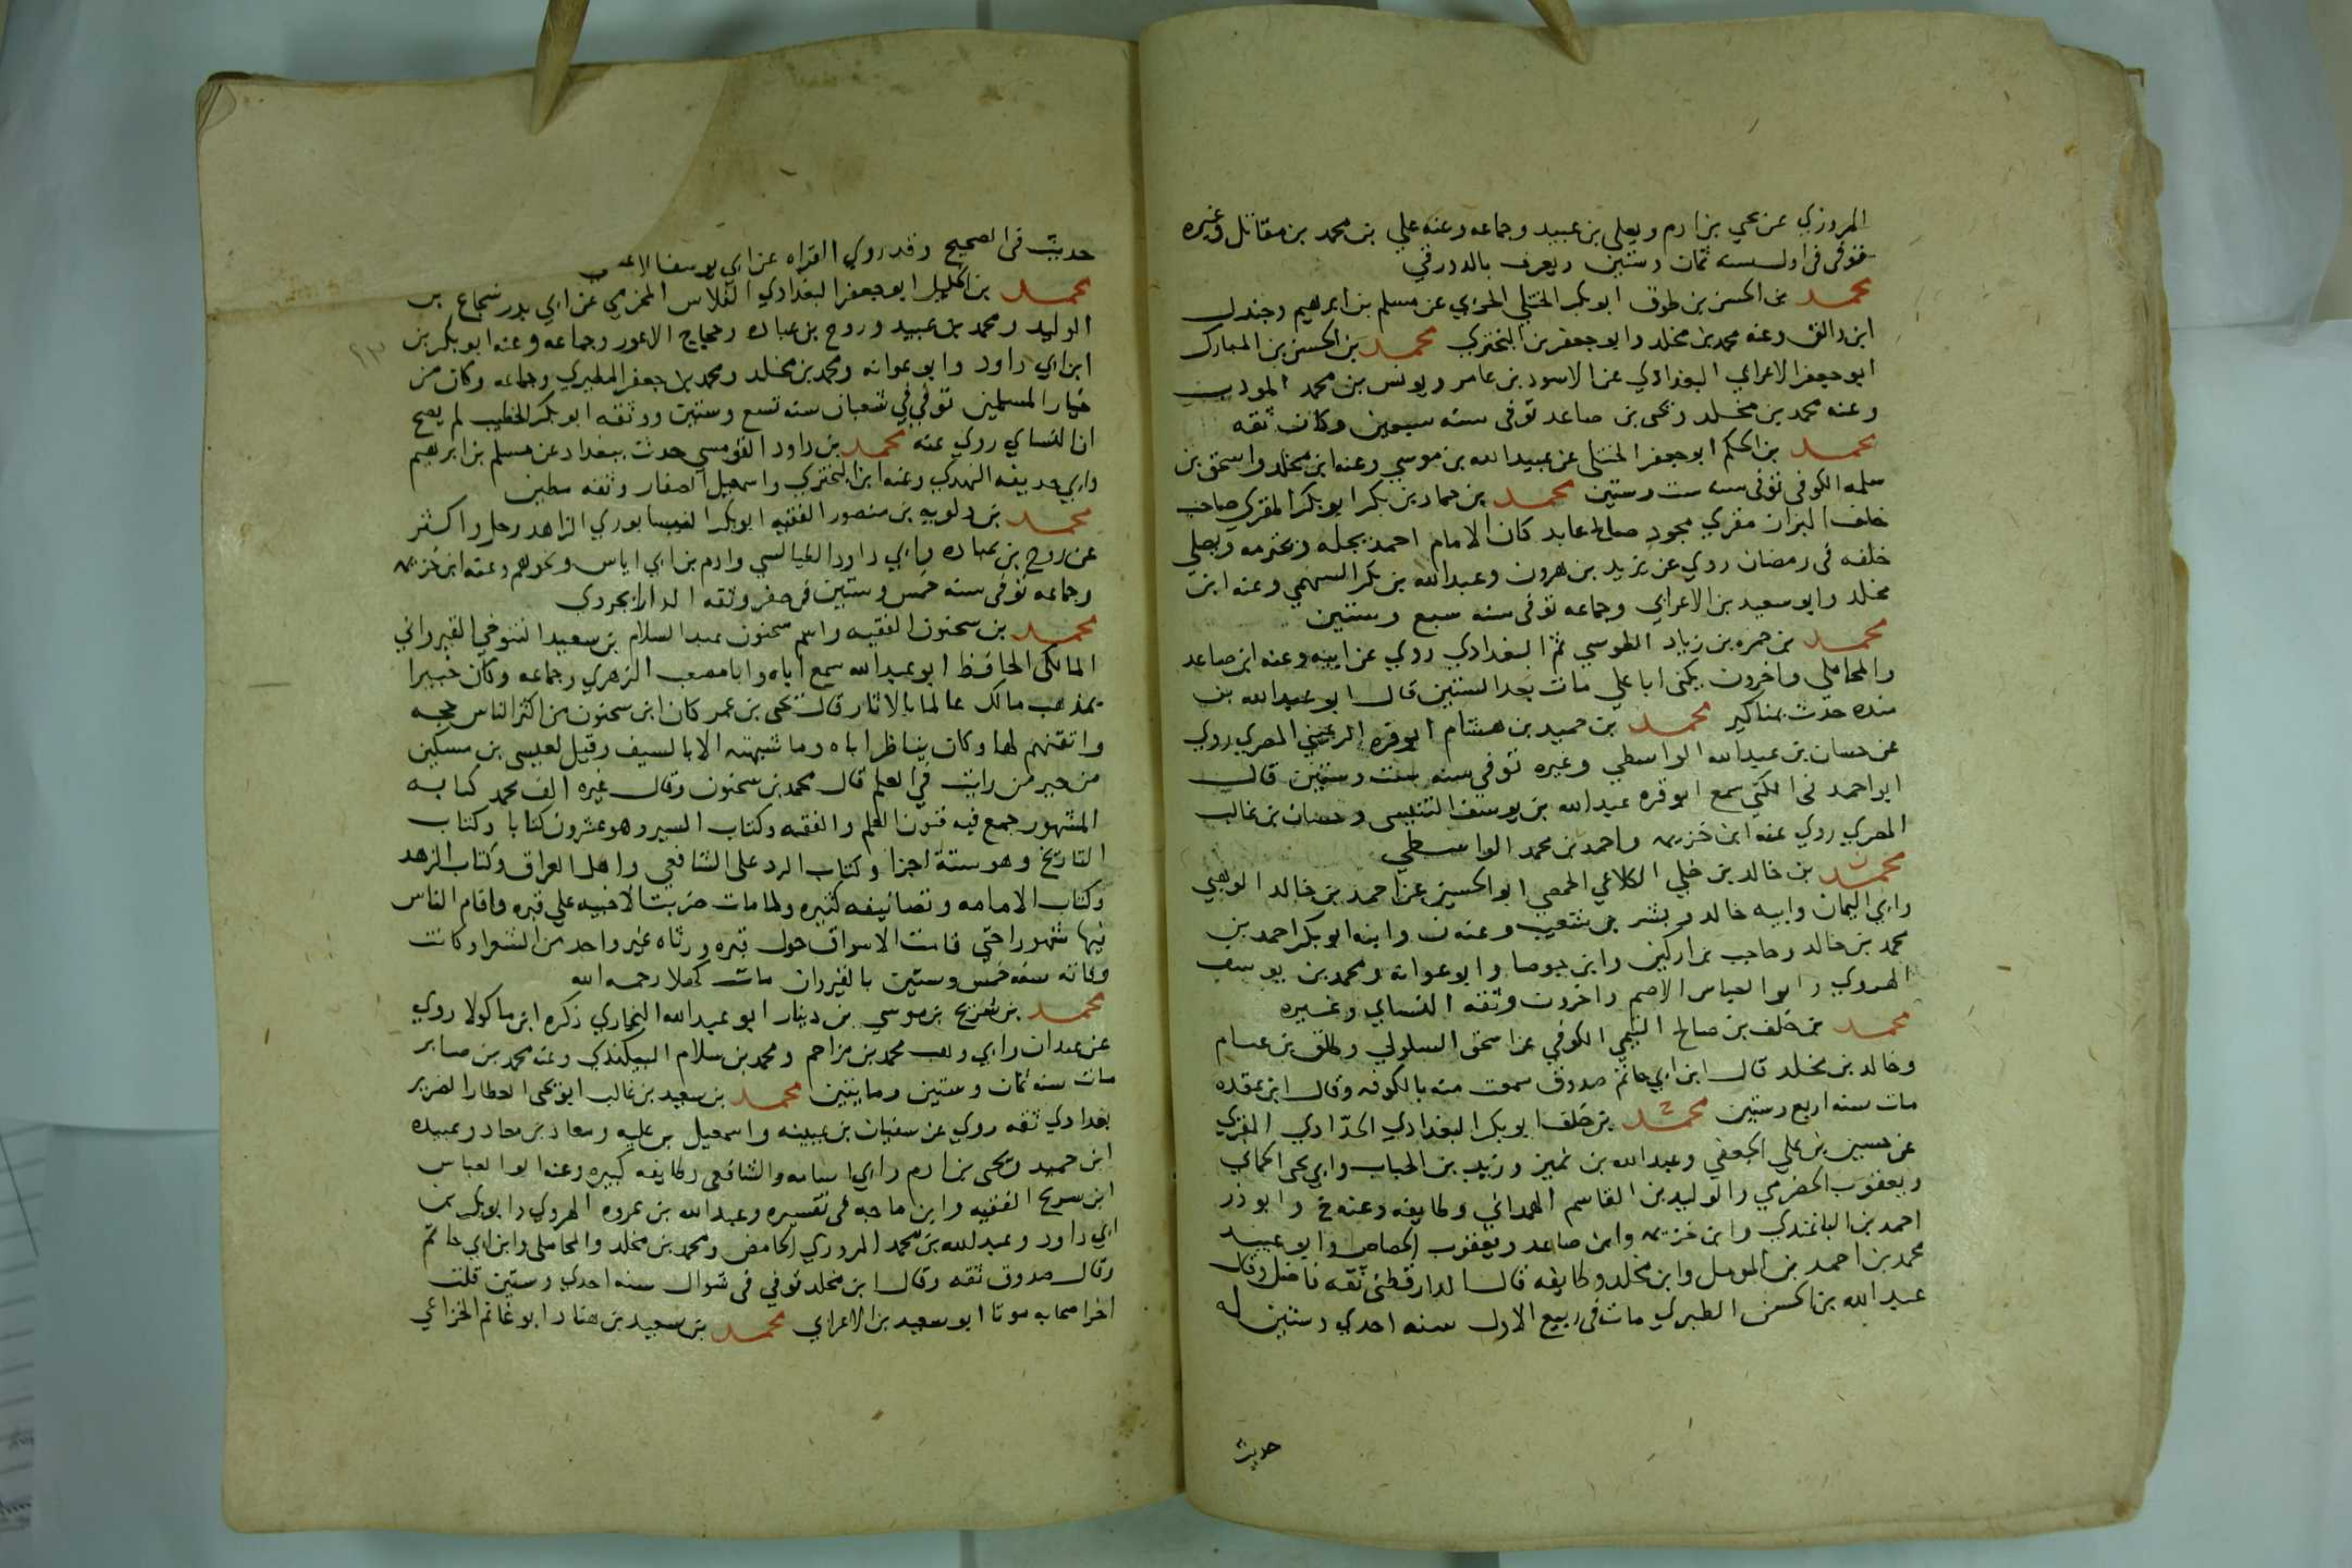 المروزي عن يحيى بن ادم ويعلى بن عبيد وجماعه وعنه علي بن محمد بن مقاتل وغيره
توفي في اول سنه ثمان وستين ويعرف بالدورقي
محمد بن الحسن بن طوق ابو بكر الختلي الحربي عن مسلم بن ابرهيم وجندل
ابن والق وعنه محمد بن مخلد وابو جعفر بن البختري محمد بن الحسن بن المبارك
ابو جعفر الاعرابي البغدادي عن الاسود بن عامر ويونس بن محمد المودب
وعنه محمد بن مخلد ويحيى بن صاعد توفي سنه سبعين وكان ثقه
محمد بن الحكم ابو جعفر الختلي عن عبيد الله بن موسي وعنه ابن مخلد واسحق بن
سلمه الكوفي توفي سنه ست وستين محمد بن حماد بن بكر ابو بكر المقري صاحب
خلف البزان مقري مجود صالح عابد كان الامام احمد يجله ويحترمه ويصلي
خلفه في رمضان روي عن يزيد بن هرون وعبد الله بن بكر السهمي وعنه ابن
مخلد وابو سعيد بن الاعرابي وجماعه توفي سنه سبع وستين
محمد بن حمزه بن زياد الطوسي ثم البغدادي روي عن ابيه وعنه ابن صاعد
والمحاملي واخرون يكنى ابا علي مات بعد الستين قال ابو عبد الله بن
منده حدث بمناكير محمد بن حميد بن هشام ابو قره الرعيني المصري روي
عن حسان بن عبد الله الواسطي وغيره توفي سنه ست وستين قال
ابو احمد في الكنى سمع ابو قره عبد الله بن يوسف التنيسي وحسان بن غالب
المصري روي عنه ابن خزيمه واحمد بن محمد الواسطي
محمد بن خالد بن خلي الكلاعي الحمصي ابو الحسين عن احمد بن خالد الوهبي
وابي اليمان وابيه خالد وبشر بن شعيب وعنه ن وابنه ابو بكر احمد بن
محمد بن خالد وحاجب بن اركين وابن جوصا وابو عوانه ومحمد بن يوسف
الهروي وابو العباس الاصم واخرون وثقه النساي وغيره
محمد بن خلف بن صالح التيمي الكوفي عن اسحق السلولي وطلق بن غنام
وخالد بن مخلد قال ابن ابي حاتم صدوق سمعت منه بالكوفه وقال ابن عقده
مات سنه اربع وستين محمد بن خلف ابو بكر البغدادي الحدادي المقري
عن حسين بن علي الجعفي وعبد الله بن نمير وزيد بن الحباب وابي يحيى الحماني
ويعقوب الحضرمي والوليد بن القاسم الهمداني وطايفه وعنه خ وابو ذر
احمد بن الباغندي وابن خزيمه وابن صاعد ويعقوب الجصاص وابو عبيد
محمد بن احمد بن المومل وابن مخلد وطايفه قال الدارقطني ثقه فاضل وقال
عبد الله بن الحسن الطبري مات في ربيع الاول سنه احدي وستين له
حديث
حديث في الصحيح وقد روي القراه عن ابي يوسف الاعشى
محمد بن الخليل ابو جعفر البغدادي الفلاس المخرمي عن ابي بدر شجاع بن
الوليد ومحمد بن عبيد وروح بن عباده وحجاج الاعور وجماعه وعنه ابو بكر بن
ابن ابي داود وابو عوانه ومحمد بن مخلد ومحمد بن جعفر المطيري وجماعه وكان من
خيار المسلمين توفي في شعبان سنه تسع وستين ووثقه ابو بكر الخطيب لم يصح
ان النساي روي عنه محمد بن داود القومسي حدث ببغداد عن مسلم بن ابرهيم
وابي حذيفه النهدي وعنه ابن البختري واسمعيل الصفار وثقه مطين
محمد بن دلويه بن منصور الفقيه ابو بكر النيسابوري الزاهد رحل واكثر
عن روح بن عباده وابي داود الطيالسي وادم بن ابي اياس ونحوهم وعنه ابن خزيمه
وجماعه توفي سنه خمس وستين في صفر وثقه الدارابجردي
محمد بن سحنون الفقيه واسم سحنون عبد السلام بن سعيد التنوخي القيرواني
المالكي الحافظ ابو عبد الله سمع اباه وابا مصعب الزهري وجماعه وكان خبيرا
بمذهب مالك عالما بالاثار قال يحيى بن عمر كان ابن سحنون من اكثر الناس حجه
واتقنهم لها وكان يناظر اباه وما شبهته الا بالسيف وقيل لعيسى بن مسكين
من خير من رايت في العلم قال محمد بن سحنون وقال غيره الف محمد كتابه
المشهور جمع فيه فنون العلم والفقه وكتاب السير وهو عشرون كتابا وكتاب
التاريخ وهو ستة اجزا وكتاب الرد على الشافعي واهل العراق وكتاب الزهد
وكتاب الامامه وتصانيفه كثيره ولما مات ضربت الاخبيه على قبره واقام الناس
فيها شهورا حتى قامت الاسواق حول قبره ورثاه غير واحد من الشعرا وكانت
وفاته سنه خمس وستين بالقيروان مات كهلا رحمه الله
محمد بن سريج بن موسي بن دينار ابو عبد الله البخاري ذكره ابن ماكولا روي
عن عبدان وابي وهب محمد بن مزاحم ومحمد بن سلام البيكندي وعنه محمد بن صابر
مات سنه ثمان وستين ومايتين محمد بن سعيد بن غالب ابو يحيى العطار الضرير
بغدادي ثقه روي عن سفيان بن عيينه واسمعيل بن عليه ومعاذ بن معاذ وعبيده
ابن حميد ويحيى بن ادم وابي اسامه والشافعي وطايفه كبيره وعنه ابو العباس
ابن سريج الفقيه وابن ماجه في تفسيره وعبد الله بن عروه الهروي وابو بكر بن
ابي داود وعبد الله بن محمد المروزي الحامض ومحمد بن مخلد والمحاملي وابن ابي حاتم
وقال صدوق ثقه وقال ابن مخلد توفي في شوال سنه احدي وستين قلت
اخر اصحابه موتا ابو سعيد بن الاعرابي محمد بن سعيد بن هناد ابو غانم الخزاعي